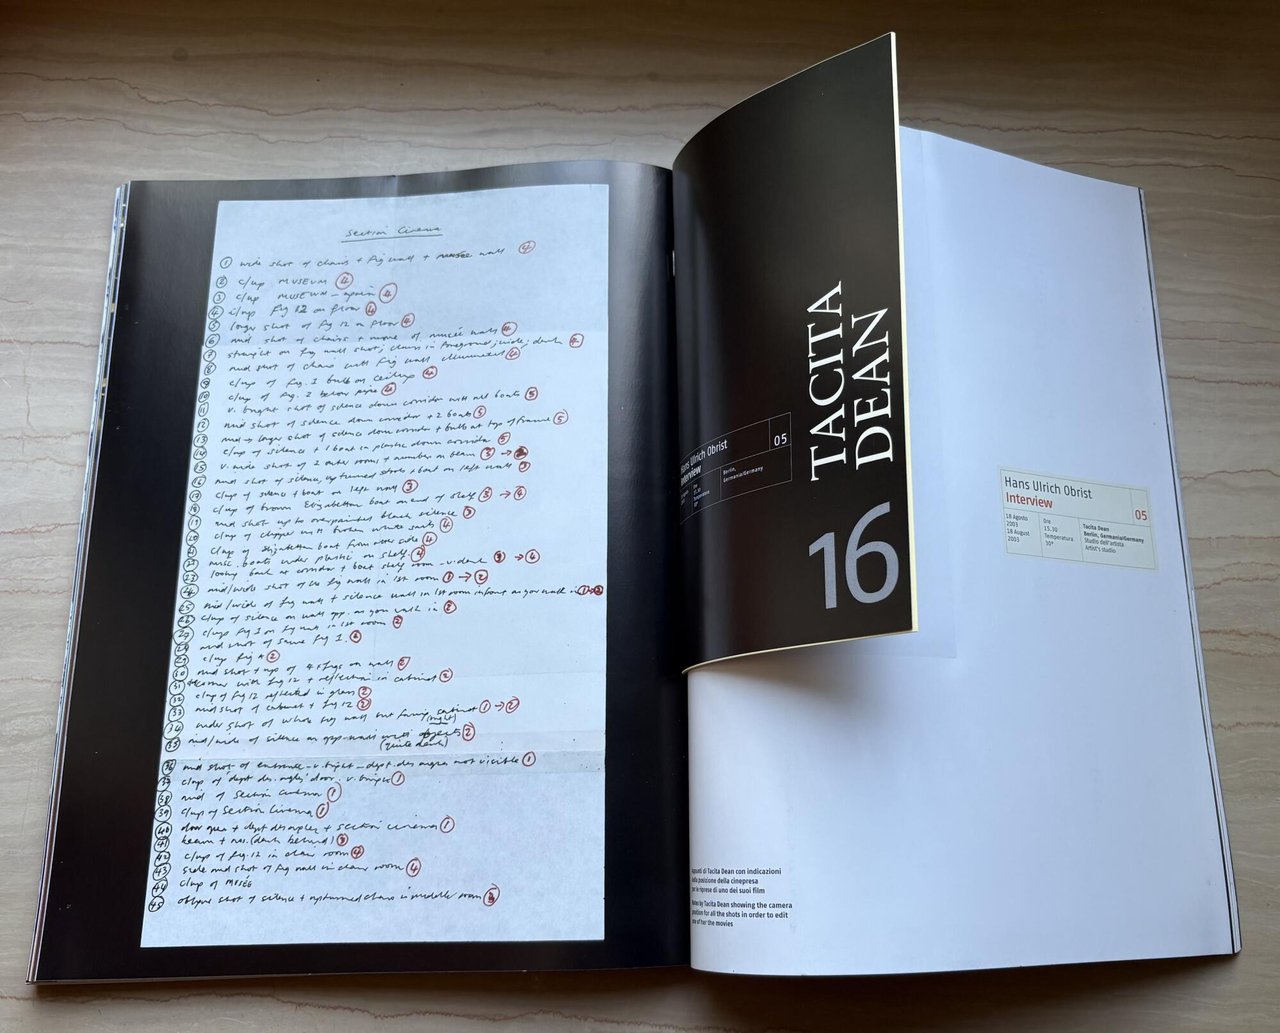 Section Cinema
1 wide shot of chairs + fig wall + musée wall 4
2 c/up MUSEUM 4
3 c/up MUSEUM - again 4
4 c/up fig 12 on floor 4
5 longer shot of fig 12 on floor 4
6 mid shot of chairs + more of musée wall 4
7 straight on fig wall shot; chairs in foreground; wide; dark 4
8 mid shot of chairs with fig wall illuminated 4
9 c/up of fig. 1 bulb on ceiling 4
10 c/up of fig. 2 below pipe 4
11 v. bright shot of silence down corridor with all boats 5
12 mid shot of silence down corridor + 2 boats 5
13 mid → longer shot of silence down corridor + bulb at top of frame 5
14 c/up of silence + 1 boat in plastic down corridor 5
15 v. wide shot of 2 outer rooms + number on beam 3 →
16 mid shot of silence, upturned stools + boat on left wall 3
17 c/up of silence + boat on left wall 3
18 c/up of brown Elizabethan boat on end of shelf 3 → 4
19 mid shot up to overpainted black silence 3
20 c/up of clipper with broken white sails 4
21 c/up of Elizabethan boat from other side 4
22 misc. boats under plastic on shelf 4
23 looking back at corridor + boat shelf room - v. dark 3 → 4
24 mid/wide shot of fig wall in 1st room 1 → 2
25 mid/wide of fig wall + silence wall in 1st room infront as you walk in 1 → 2
26 c/up of silence on wall opp. as you walk in 2
27 c/up fig 1 on fig wall in 1st room 2
28 mid shot of same fig 1. 2
29 c/up fig A 2
30 mid shot + up of 4 x figs on wall 2
31 corner with fig 12 + reflection in cabinet 2
32 c/up of fig 12 reflected in glass 2
33 mid shot of cabinet + fig 12 2
34 wider shot of whole fig wall but facing cabinet 1 → 2
(might)
35 mid/wide of silence on opp. wall with objects 2
(quite dark)
36 mid shot of entrance - v. bright - dept. des aigles not visible 1
37 c/up of dept des. aigles door. v. bright 1
38 mid of Section Cinema 1
39 c/up of Section Cinema 1
40 door open + dept des aigles + section cinema 1
41 beam + nos. (dark behind) 3
42 c/up of fig. 12 in chair room 4
43 side mid shot of fig wall in chair room 4
44 c/up of MUSÉE
45 oblique shot of silence + upturned chairs in middle room
TACITA
DEAN
16
Hans Ulrich Obrist
Interview
05
Berlin,
Germania/Germany
Hans Ulrich Obrist
Interview
05
18 Agosto
2003
18 August
2003
Ore
15.30
Temperatura
30°
Tacita Dean
Berlin, Germania/Germany
Studio dell'artista
Artist's studio
Appunti di Tacita Dean con indicazioni
sulla posizione della cinepresa
per le riprese di uno dei suoi film
Notes by Tacita Dean showing the camera
position for all the shots in order to edit
one of her the movies